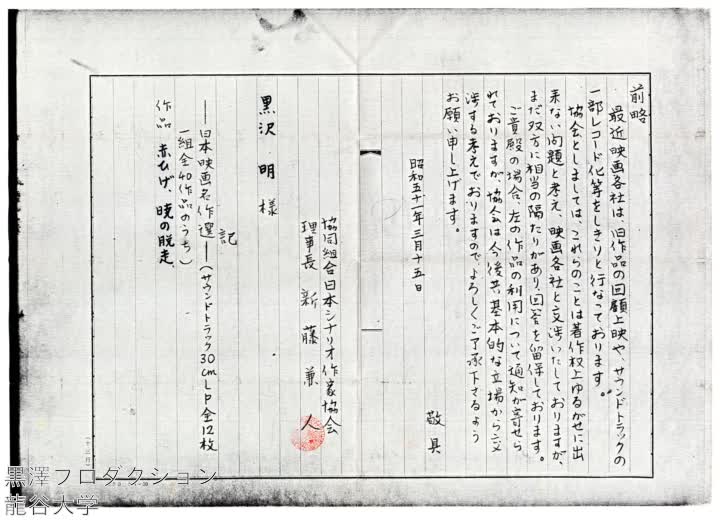 前略
最近映画各社は、旧作品の回顧上映や、サウンドトラックの
一部レコード化等をしきりと行なっております。
協会としましては、これらのことは著作权上ゆるがせに出
来ない問題と考え、映画各社と交渉いたしておりますが、
まだ双方に相当の隔たりがあり、回答を留保しております。
ご貴殿の場合、左の作品の利用について通知が寄せら
れておりますが、協会は今後共、基本的な立場から交
渉する考えでおりますので、よろしくご了承下さるよう
お願い申し上げます。
敬具
昭和五十一年三月十五日
協同組合日本シナリオ作家協会
理事長 新藤兼人
黒沢 明 様
記
――日本映画名作選――(サウンドトラック30cmLP全12枚
一組全40作品のうち)
作品 赤ひげ、暁の脱走、
黒澤プロダクション
龍谷大学